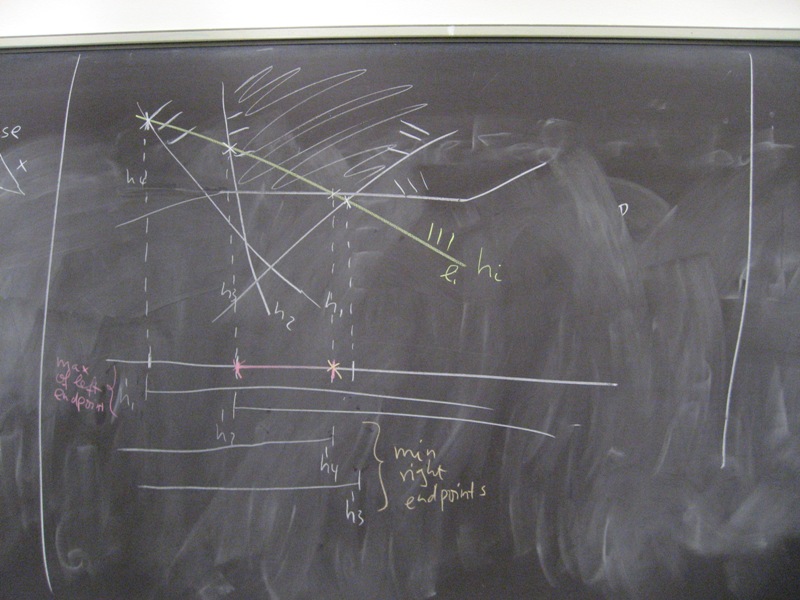 se
x
h4
h3
h2
h1
l1 hi
max
of left
endpoint
h1
h2
h4
h3
min
right
endpoints